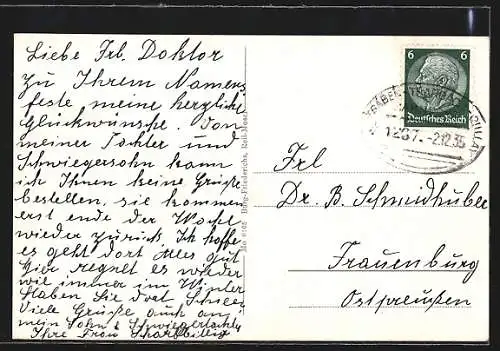 Liebe Frl. Doktor
zu Ihrem Namens
feste meine herzliche
Glückwünsche. Von
meiner Tochter und
Schwiegersohn kann
ich Ihnen keine Grüße
bestellen, sie kommen
erst ende der Woche
wieder zurück. Ich hoffe
es geht dort alles gut
hier regnet es wieder
wie immer im Winter
Haben Sie dort Schnee
Viele Grüße auch an
mein Sohn & Schwiegertochter
Ihre Frau
6 6
Deutsches Reich
1287 -2.12.35
Frl
Dr. B. Schmidhuber
Frauenburg
Ostpreußen